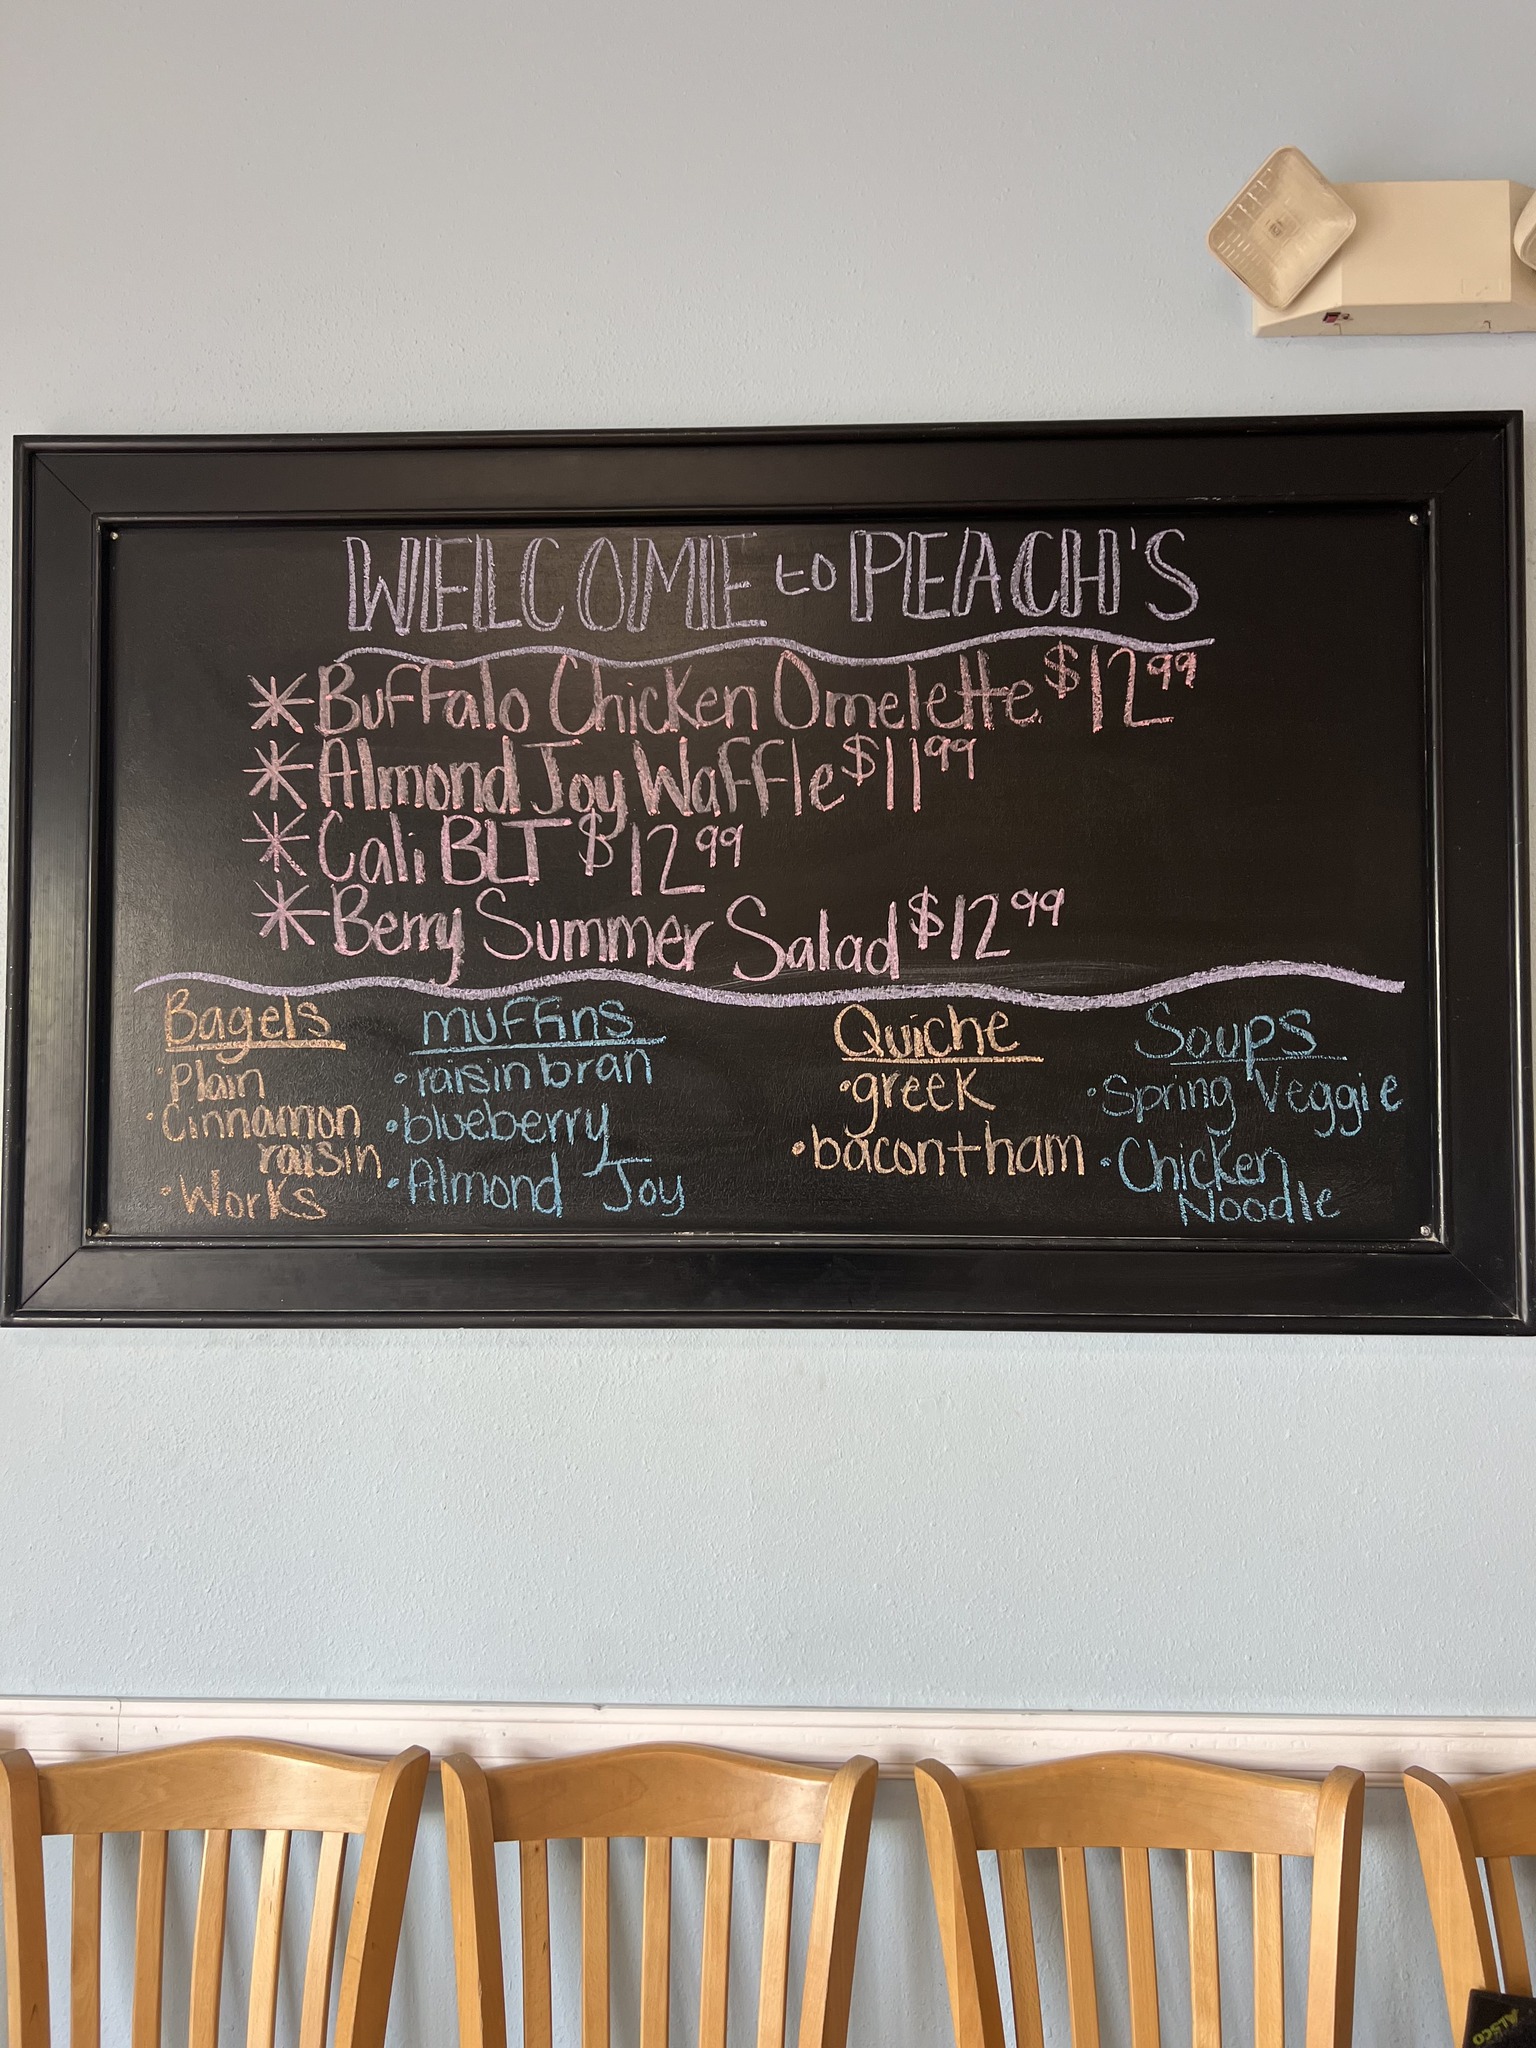 WELCOME to PEACH'S
* Buffalo Chicken Omelette $12.99
* Almond Joy Waffle $11.99
* Cali BLT $12.99
* Berry Summer Salad $12.99
Bagels
• Plain
• Cinnamon
raisin
• Works
muffins
• raisin bran
• blueberry
• Almond Joy
Quiche
• greek
• bacon + ham
Soups
• Spring Veggie
• Chicken
Noodle
ALSCO